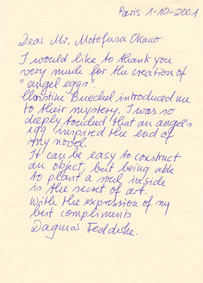 Paris 1-10-2001
Dear Mr. Motofusa Okano
I would like to thank you
very much for the creation of
"angel eggs".
Christine Buechel introduced me
to their mystery. I was so
deeply touched that an angel's
egg inspired the end of
my novel.
It can be easy to construct
an object, but being able
to plant a soul inside
is the secret of art.
With the expression of my
best compliments
Dagmar Fedderke.